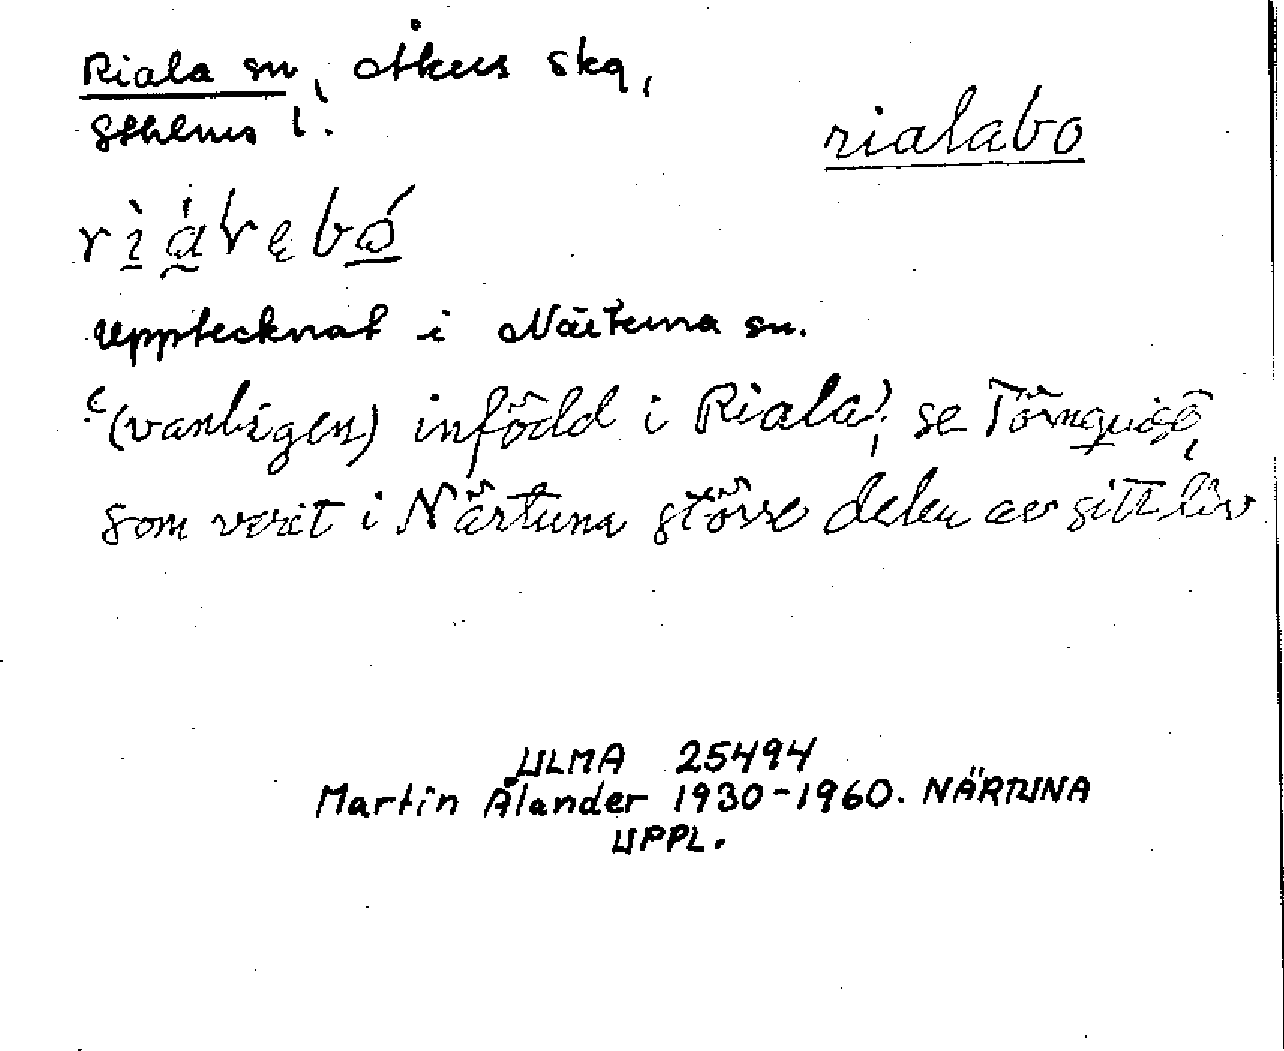 Riala sn, Åkers skg,
Sthlms l.
rialabo
Upptecknat i Närtuna sn.
'(vanligen) infödd i Riala', se Törnquist,
som varit i Närtuna större delen av sitt liv
ULMA 25494
Martin Ålander 1930-1960. NÄRTUNA
UPPL.